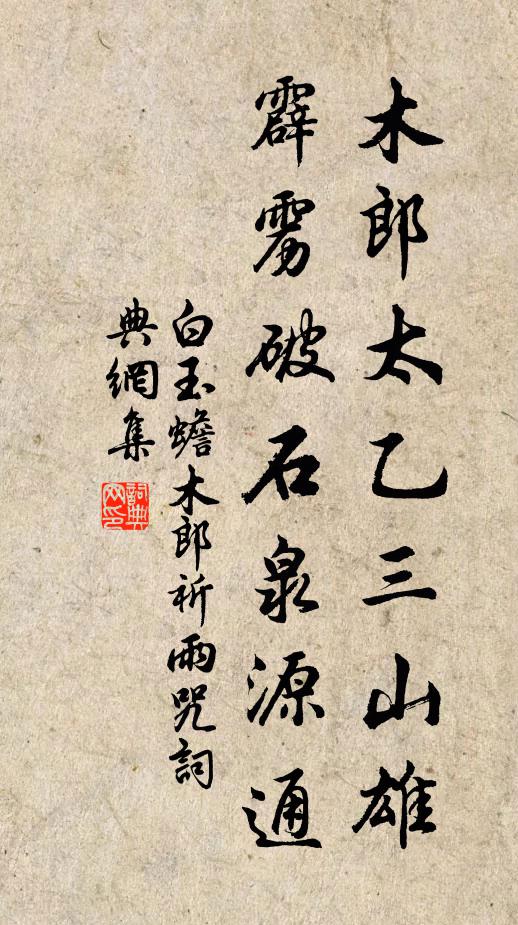 木郎太乙三山雄
霹雳破石泉源通
白玉蟾木郎祈雨咒詞
典網集
詞典網印